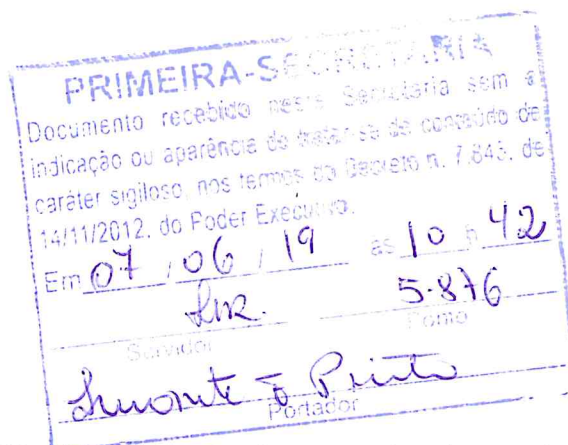 PRIMEIRA-SECRETARIA
Documento recebido nesta Secretaria sem a
indicação ou aparência de tratar-se de conteúdo de
caráter sigiloso, nos termos do Decreto n. 7.845, de
14/11/2012, do Poder Executivo.
Em 07 / 06 / 19 as 10 h 42
5.876
Servidor Ponto
Portador